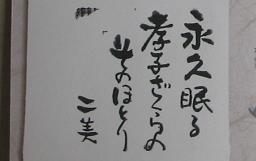 永久眠る
孝子ざくらの
そのほとり
二美